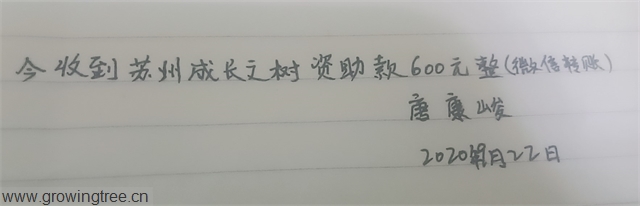 今收到苏州成长之树资助款600元整(微信转账)
唐廉峻
2020年月22日
www.growingtree.cn